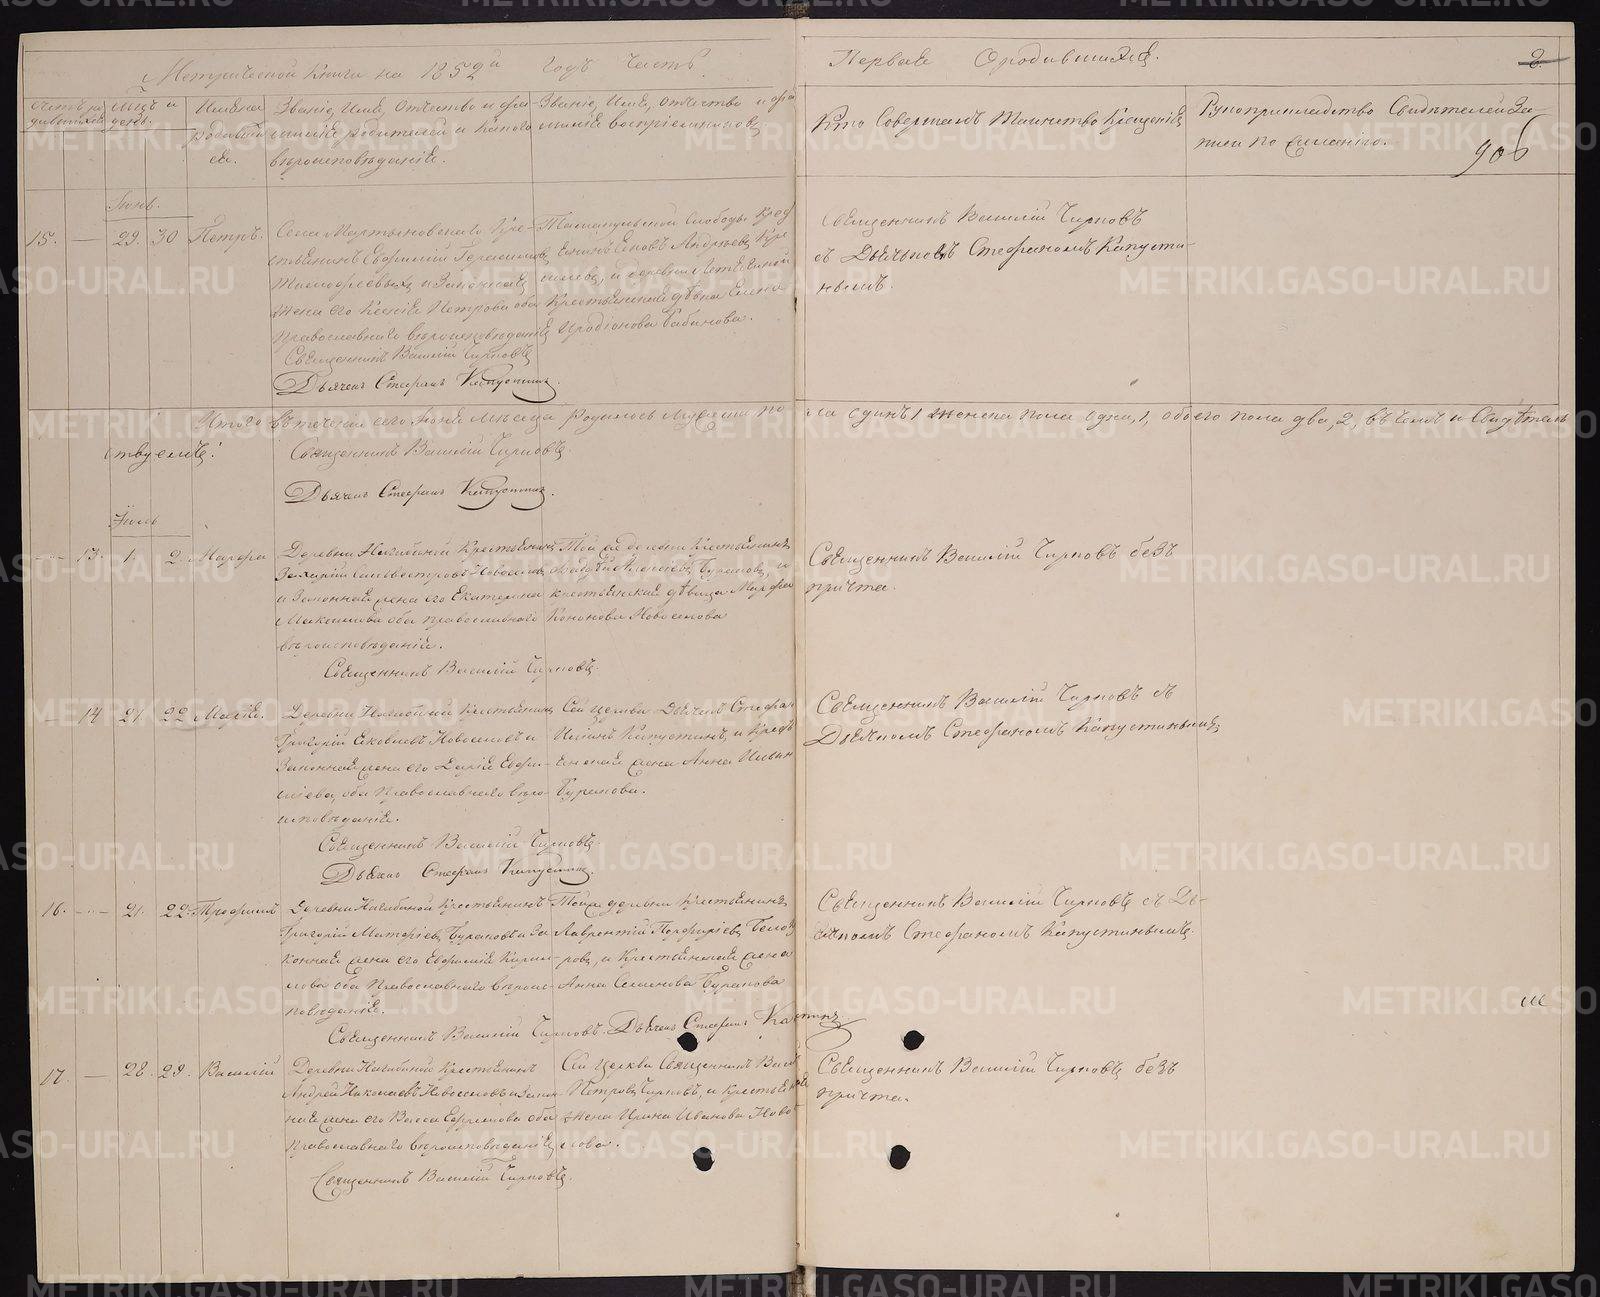 Метрической книги на 1852й годъ Часть
Первая О родившихся.
2.
906
Счетъ ро-
дившихся
Мѣсяцъ и
день.
Имена
родивши
ся.
Званіе, Имя, Отчество и фа-
милія родителей и какого
вѣроисповѣданія.
Званіе, Имя, отчество и фа
милія воспріемниковъ
Кто Совершалъ Таинство Крещенія
Рукоприкладство Свидѣтелей За-
писи по желанію.
Іюнь.
15. — 29. 30 Петръ.
Села Мартыновскаго Кре-
стьянинъ Евфимій Герасимовъ
и Законная
жена его Ксенія Петрова оба
Православнаго вѣроисповѣданія
Священникъ Василій Чирковъ
Дьячекъ Стефанъ Капустинъ.
Слободы
Андреевъ
и деревни
Крестьянская дѣвка Елена
Иродіонова Бабинова.
Священникъ Василій Чирковъ
съ Дьячкомъ Стефаномъ Капусти-
нымъ.
Итого въ теченіи сего Іюня мѣсяца родилось мужеска по
ла одинъ 1 женска пола одна, 1, обоего пола два, 2, въ чемъ и Свидѣтель
ствуемъ:
Священникъ Василій Чирковъ.
Дьячекъ Стефанъ Капустинъ.
Іюль
— 13. 1. 2. Марфа
Деревни Нагибиной Крестьянинъ
Захарій Сильвестровъ Новоселовъ
и Законная жена его Екатерина
Максимова оба православнаго
вѣроисповѣданія.
Священникъ Василій Чирковъ.
Той же деревни Крестьянинъ
Бурановъ, и
крестьянская дѣвица Марфа
Кононова Новоселова
Священникъ Василій Чирковъ безъ
причта.
— 14 21 22 Марія.
Деревни Нагибиной Крестьянинъ
Григорій Яковлевъ Новоселовъ и
Законная жена его Дарія Ефи-
мова, оба Православнаго вѣро-
исповѣданія.
Священникъ Василій Чирковъ.
Дьячекъ Стефанъ Капустинъ.
Сей церкви Дьячекъ Стефанъ
Капустинъ, и Крестья
янская жена Анна Ильин
Буранова.
Священникъ Василій Чирковъ съ
Дьячкомъ Стефаномъ Капустинымъ,
16. — 21. 22. Трофимъ
Деревни Нагибиной Крестьянинъ
Григорій Матфіевъ Бурановъ и За
конная жена его Евфимія Кирил-
лова оба Православнаго вѣроис-
повѣданія.
Священникъ Василій Чирковъ. Дьячекъ Стефанъ Капустинъ.
Той же деревни Крестьянинъ
Лаврентій Порфирьевъ
и Крестьянская жена
Анна Семенова Буранова
Священникъ Василій Чирковъ съ Дь-
ячкомъ Стефаномъ Капустинымъ.
17. — 28. 29. Василій
Деревни Нагибиной Крестьянинъ
Андрей Николаевъ Новоселовъ и Закон
ная жена его Васса Ефремова оба
Православнаго вѣроисповѣданія
Священникъ Василій Чирковъ.
Сей церкви Священникъ Васил
Петровъ Чирковъ, и крестьян
жена Ирина Иванова Ново
лова.
Священникъ Василій Чирковъ безъ
причта.
METRIKI.GASO-URAL.RU